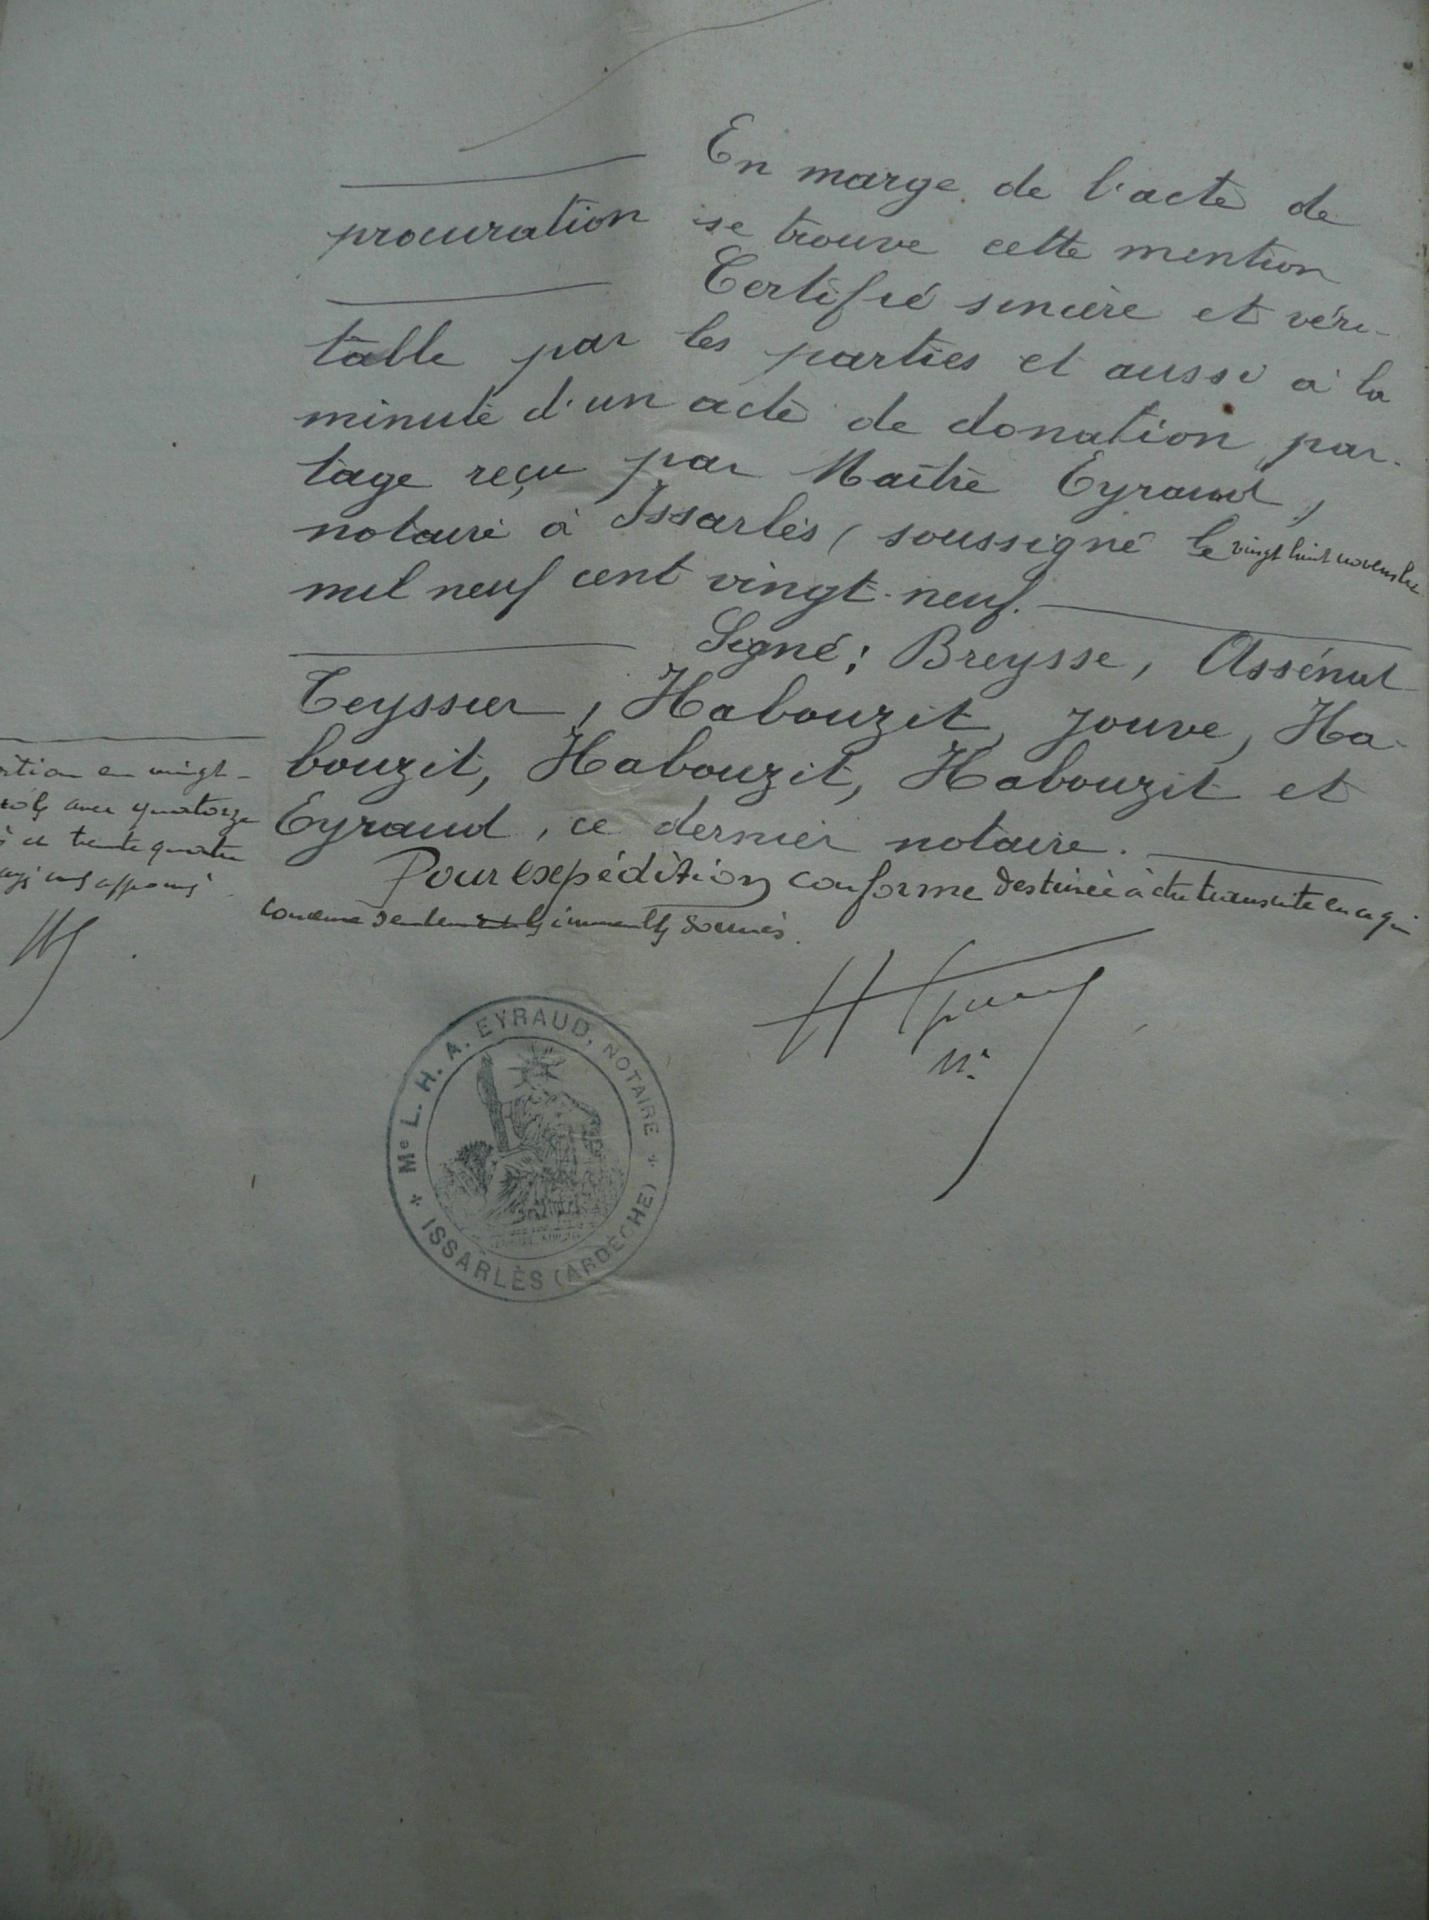 En marge de l'acte de
procuration se trouve cette mention
Certifié sincère et véri-
table par les parties et aussi à la
minute d'un acte de donation par-
tage reçu par Maître Eyraud,
notaire à Issarlès, soussigné le vingt huit novembre
mil neuf cent vingt-neuf.
Signé: Breysse, Assénat
Teyssier, Habouzit, Jouve, Ha-
bouzit, Habouzit, Habouzit et
Eyraud, ce dernier notaire.
Pour expédition conforme destinée à être transcrite en ce qui
concerne seulement les immeubles donnés.
en vingt-
avec quatorze
et trente quatre
Me L. H. A. EYRAUD, NOTAIRE
ISSARLÈS (ARDÈCHE)